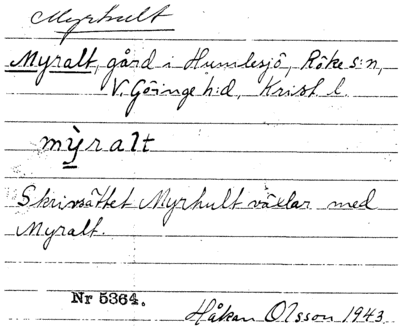 Myrhult
Myralt, gård i Humlesjö, Röke s:n,
V. Göinge h:d, Krist. l.
mỳralt
Skrivsättet Myrhult växlar med
Myralt.
Nr 5364.
Håkan Olsson 1943.